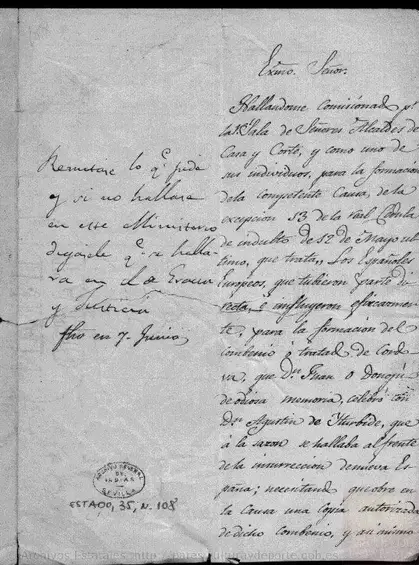 Exmo. Señor.
Hallandome Comisionado pr.
la Rl. Sala de Señores Alcaldes de
Casa y Corte, y como uno de
sus individuos, para la formacion
dela competente Causa, dela
excepcion 13 dela real Cedula
de indulto de 12 de Mayo ul
timo, que trata, Los Españoles
Europeos, que tubieron parte di
recta, é influyeron eficazmen
te, para la formacion del
combenio ó tratado de Cordo
va, que Dn. Juan O Donojú
de odiosa memoria, celebró con
Dn. Agustin de Yturbide, que
á la sazon se hallaba al frente
dela insurreccion de nueva Es
paña; necesitando que obre en
la Causa una copia autorizada
de dicho combenio, y asi mismo
Remitase lo qe. pide
y si no hallase
en este Ministerio
digasele qe. se halla
ra en el de Gracia
y Justicia
fho en 7. Junio
ARCHIVO GENERAL
DE
INDIAS
SEVILLA
ESTADO, 35, N. 108